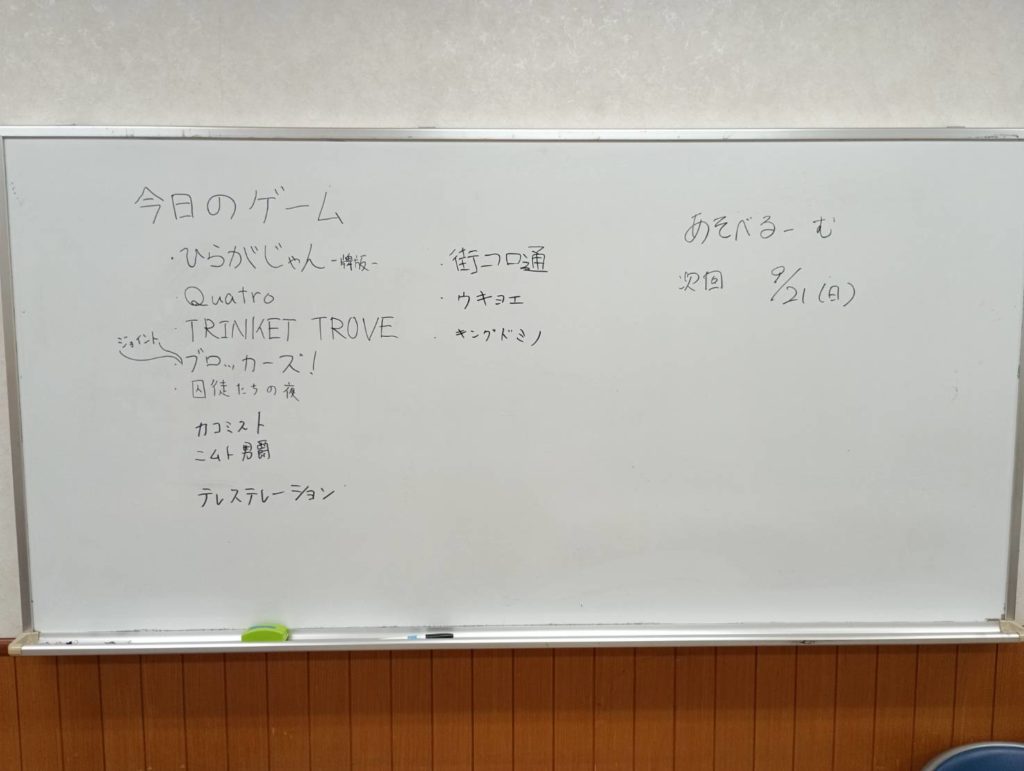 今日のゲーム
・ひらがじゃん -牌版-
・Quatro
・TRINKET TROVE
ジョイント
ブロッカーズ!
・囚徒たちの夜
カコミスト
ニムト男爵
テレステレーション
・街コロ通
・ウキヨエ
・キングドミノ
あそべるーむ
次回 9/21(日)